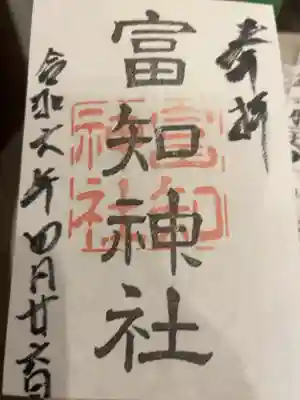 奉拝
富知神社
富知
神社
令和六年四月廿六日